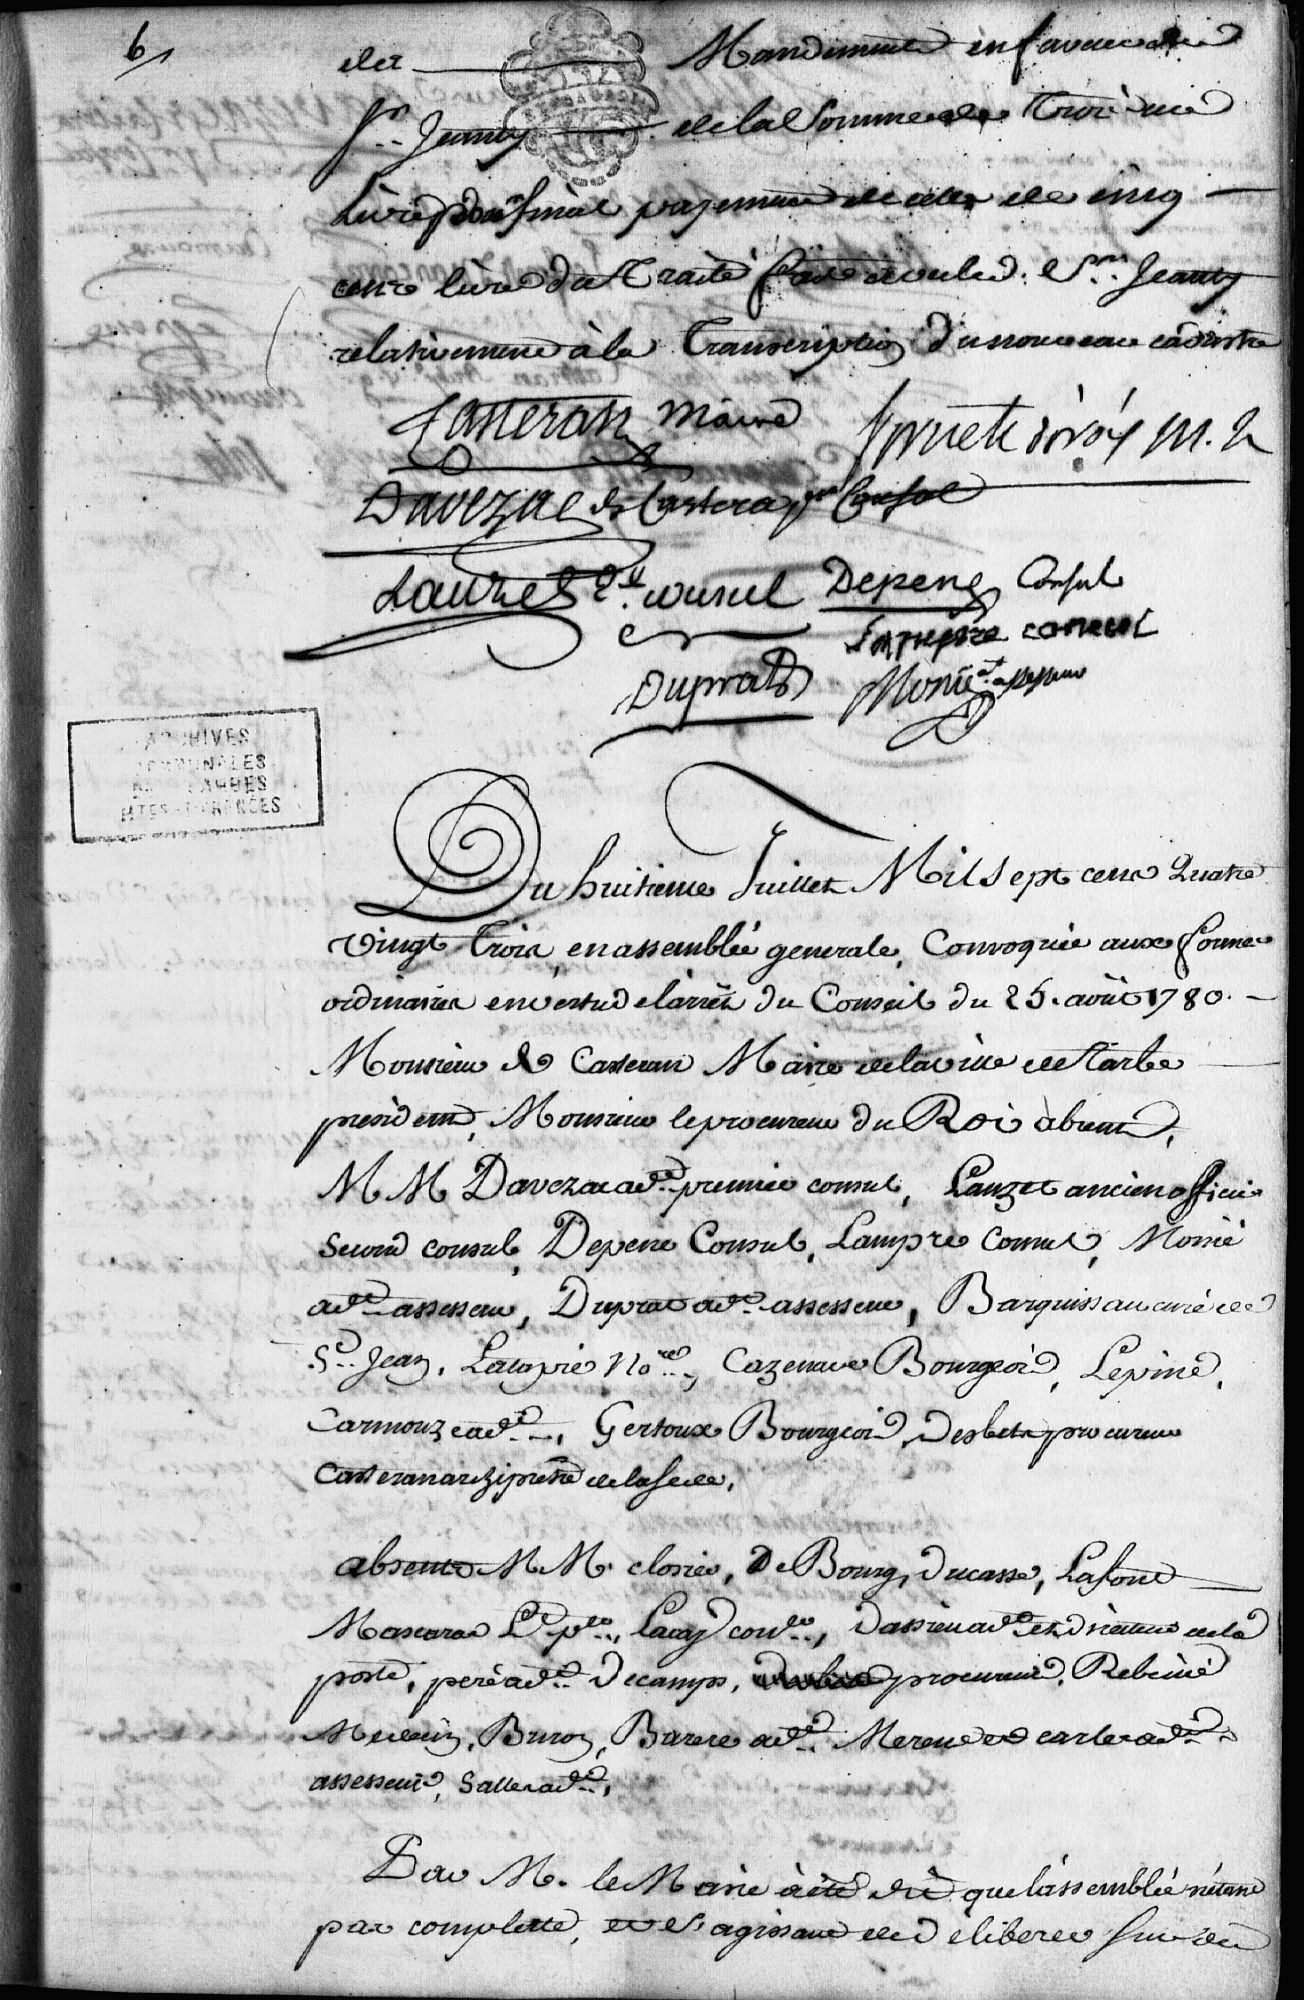 6
des Mandements en faveur du
Sr. Jeanty de la Somme de Trois cent
Livres pour final payement de celle de cinq
cent livres du Traité fait avec led. Sr. Jeanty
relativement à la Transcription du nouveau cadastre
Casteran Maire
Davezac de Castera pr Consul
Lauzet 2d. consul Depene Consul
Lampre consul
Duprat Monié at. assesseur
ARCHIVES
COMMUNALES
DE TARBES
HTES-PYRENEES
Du huitieme Juillet Mil Sept cent Quatre
Vingt Trois, en assemblée generale, Convoquée aux formes
ordinaires en vertu de l'arrêt du Conseil du 25. août 1780.
Monsieur de Casteran Maire de la ville de Tarbe
président, Monsieur le procureur du Roi absent,
M M Davezac adt. premier consul, Lauzet ancien officier
Second consul, Depene Consul, Lampre Consul, Monié
adt. assesseur, Duprat adt. assesseur, Barquissau curé de
St. Jean, Latapie Nore., Cazenave Bourgeois, Lepine,
Carmouze adt., Gertoux Bourgeois, Desbets procureur
Casteran archiprêtre de la sede,
absents M M. closier, De Bourg, Ducasse, Lafont
Mascaras, Lacay, Dassieu adt. et directeur de la
poste, peré adt. Decamps, procureur, Rebeillé
Medecin, Buron, Barere adt. Merens et carles adt.
assesseur, Salles adt.,
Par M. le Maire a été dit que l'assemblée n'étant
pas complette, et s'agissant de deliberer sur des